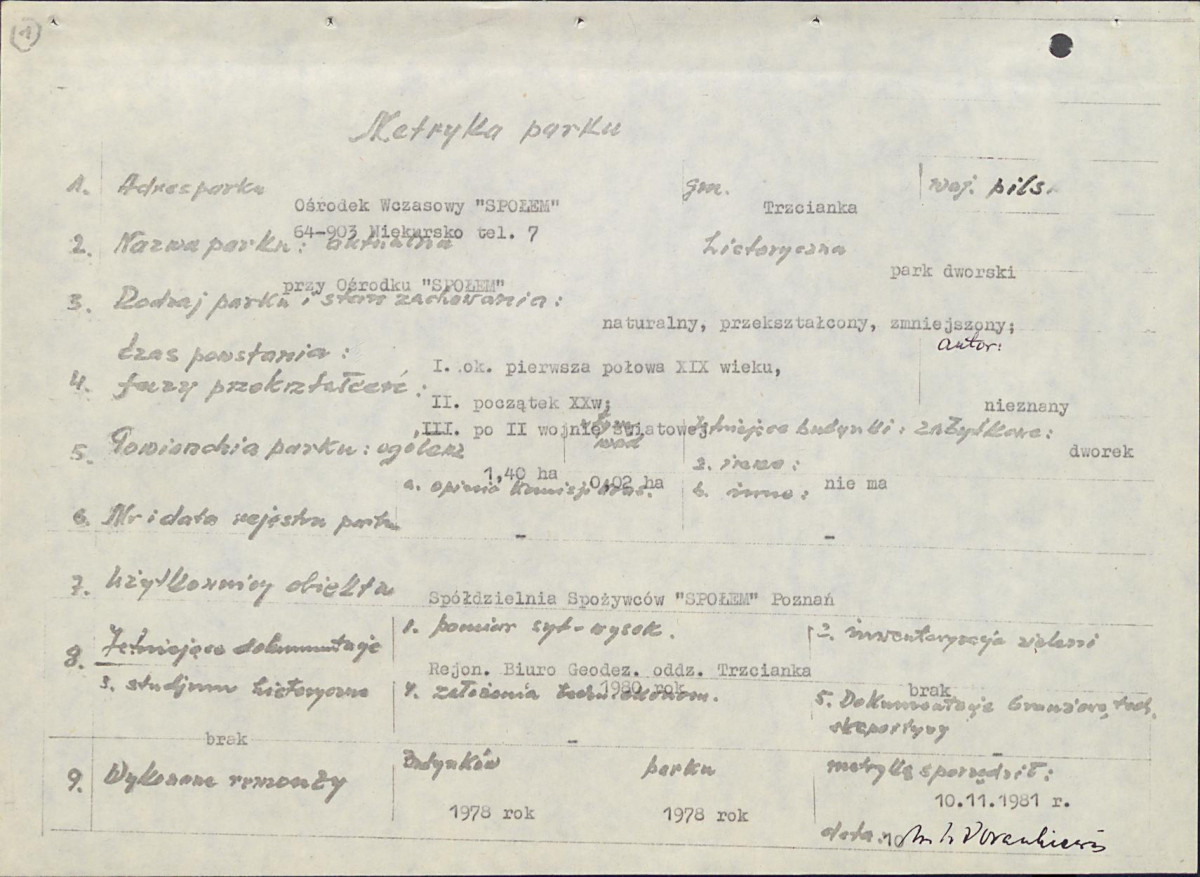 1
Metryka parku
1. Adres parku gm. woj. pilsk
Ośrodek Wczasowy "SPOŁEM" Trzcianka
64-903 Niekursko tel. 7
2. Nazwa parku: aktualna historyczna
park dworski
przy Ośrodku "SPOŁEM"
3. Rodzaj parku i stan zachowania:
naturalny, przekształcony, zmniejszony;
czas powstania: autor:
I. ok. pierwsza połowa XIX wieku,
4. fazy przekształceń:
II. początek XXw; nieznany
III. po II wojnie światowej istniejące budynki: zabytkowe:
5. Powierzchnia parku: ogólem wód dworek
1,40 ha 0,02 ha
a. opinia Komisji b. inne: nie ma
6. Nr i data rejestru parku
- -
7. Użytkownicy obiektu
Spółdzielnia Spożywców "SPOŁEM" Poznań
8. Istniejące dokumentacje 1. pomiar syt-wysok. 2. inwentaryzacja zieleni
Rejon. Biuro Geodez. oddz. Trzcianka
1980 rok brak
3. studjum historyczne 4. założenia techn. ekonom. 5. Dokumentacje branżowe, tech.
brak - -
9. Wykonane remonty Budynków parku metrykę sporządził:
10.11.1981 r.
1978 rok 1978 rok
data: